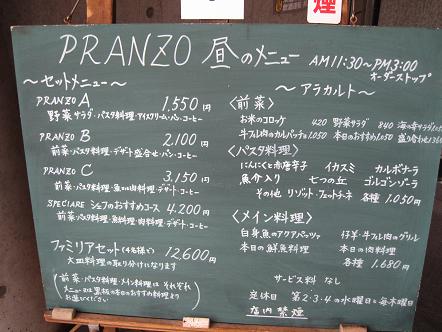 煙
PRANZO 昼のメニュー AM11:30〜PM3:00
オーダーストップ
〜セットメニュー〜
PRANZO A 1,550円
野菜サラダ・パスタ料理・アイスクリーム・パン・コーヒー
PRANZO B 2,100円
前菜・パスタ料理・デザート盛合せ・パン・コーヒー
PRANZO C 3,150円
前菜・パスタ料理・魚又は肉料理・デザート・コーヒー
SPECIARE シェフのおすすめコース 4,200円
前菜・パスタ料理・魚料理・肉料理・デザート・コーヒー
ファミリアセット(4名様で) 12,600円
大皿料理の取り分けになります
(前菜・パスタ料理・メイン料理は それぞれ
メニュー又は黒板の本日のおすすめ料理より
お選びください)
〜アラカルト〜
〈前菜〉
お米のコロッケ 420 野菜サラダ 840 海の幸サラダ
牛フレ肉のカルパッチョ 1,050 本日のおすすめ 1,050 盛り合わせ
〈パスタ料理〉
にんにくと赤唐辛子 イカスミ カルボナーラ
魚介入り 七つの丘 ゴルゴンゾーラ
その他 リゾット・フェットチーネ 各種 1,050円
〈メイン料理〉
白身魚のアクアパッツァ 仔羊・牛フレ肉のグリル
本日の鮮魚料理 本日の肉料理
各種 1,680円
サービス料 なし
定休日 第2・3・4の水曜日と毎木曜日
店内禁煙